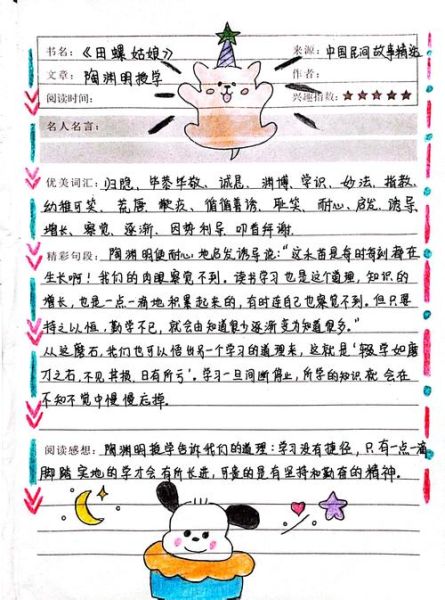 书名：《田螺姑娘》 来源：中国民间故事精选
文章：陶渊明授学 作者：
阅读时间： 兴趣指数：★★★★★
名人名言：
优美词汇：归隐、毕恭毕敬、诚恳、渊博、学识、妙法、指教、
可笑、荒唐、歉疚、循循善诱、耻笑、耐心、启发、诱导、
增长、察觉、逐渐、因势利导、叩首拜谢
精彩句段：陶渊明便耐心地启发诱导说：“这禾苗是每时每刻都在
生长啊！我们的肉眼察觉不到。读书学习也是这个道理，知识的
增长，也是一点一滴地积累起来的，有时连自己也察觉不到。但只要
持之以恒，勤学不已，就会由知道很少逐渐变为知道很多。”
从这磨石，我们也可以悟出另一个学习的道理来，这就是‘辍学如磨
刀之石，不见其损，日有所亏’。学习一旦间断停业，所学的知识就会在
不知不觉中慢慢忘掉。
阅读感想：陶渊明授学告诉我们的道理：学习没有捷径，只有一点一滴
脚踏实地的学才会有所长进，可贵的是有坚持和勤奋的精神。